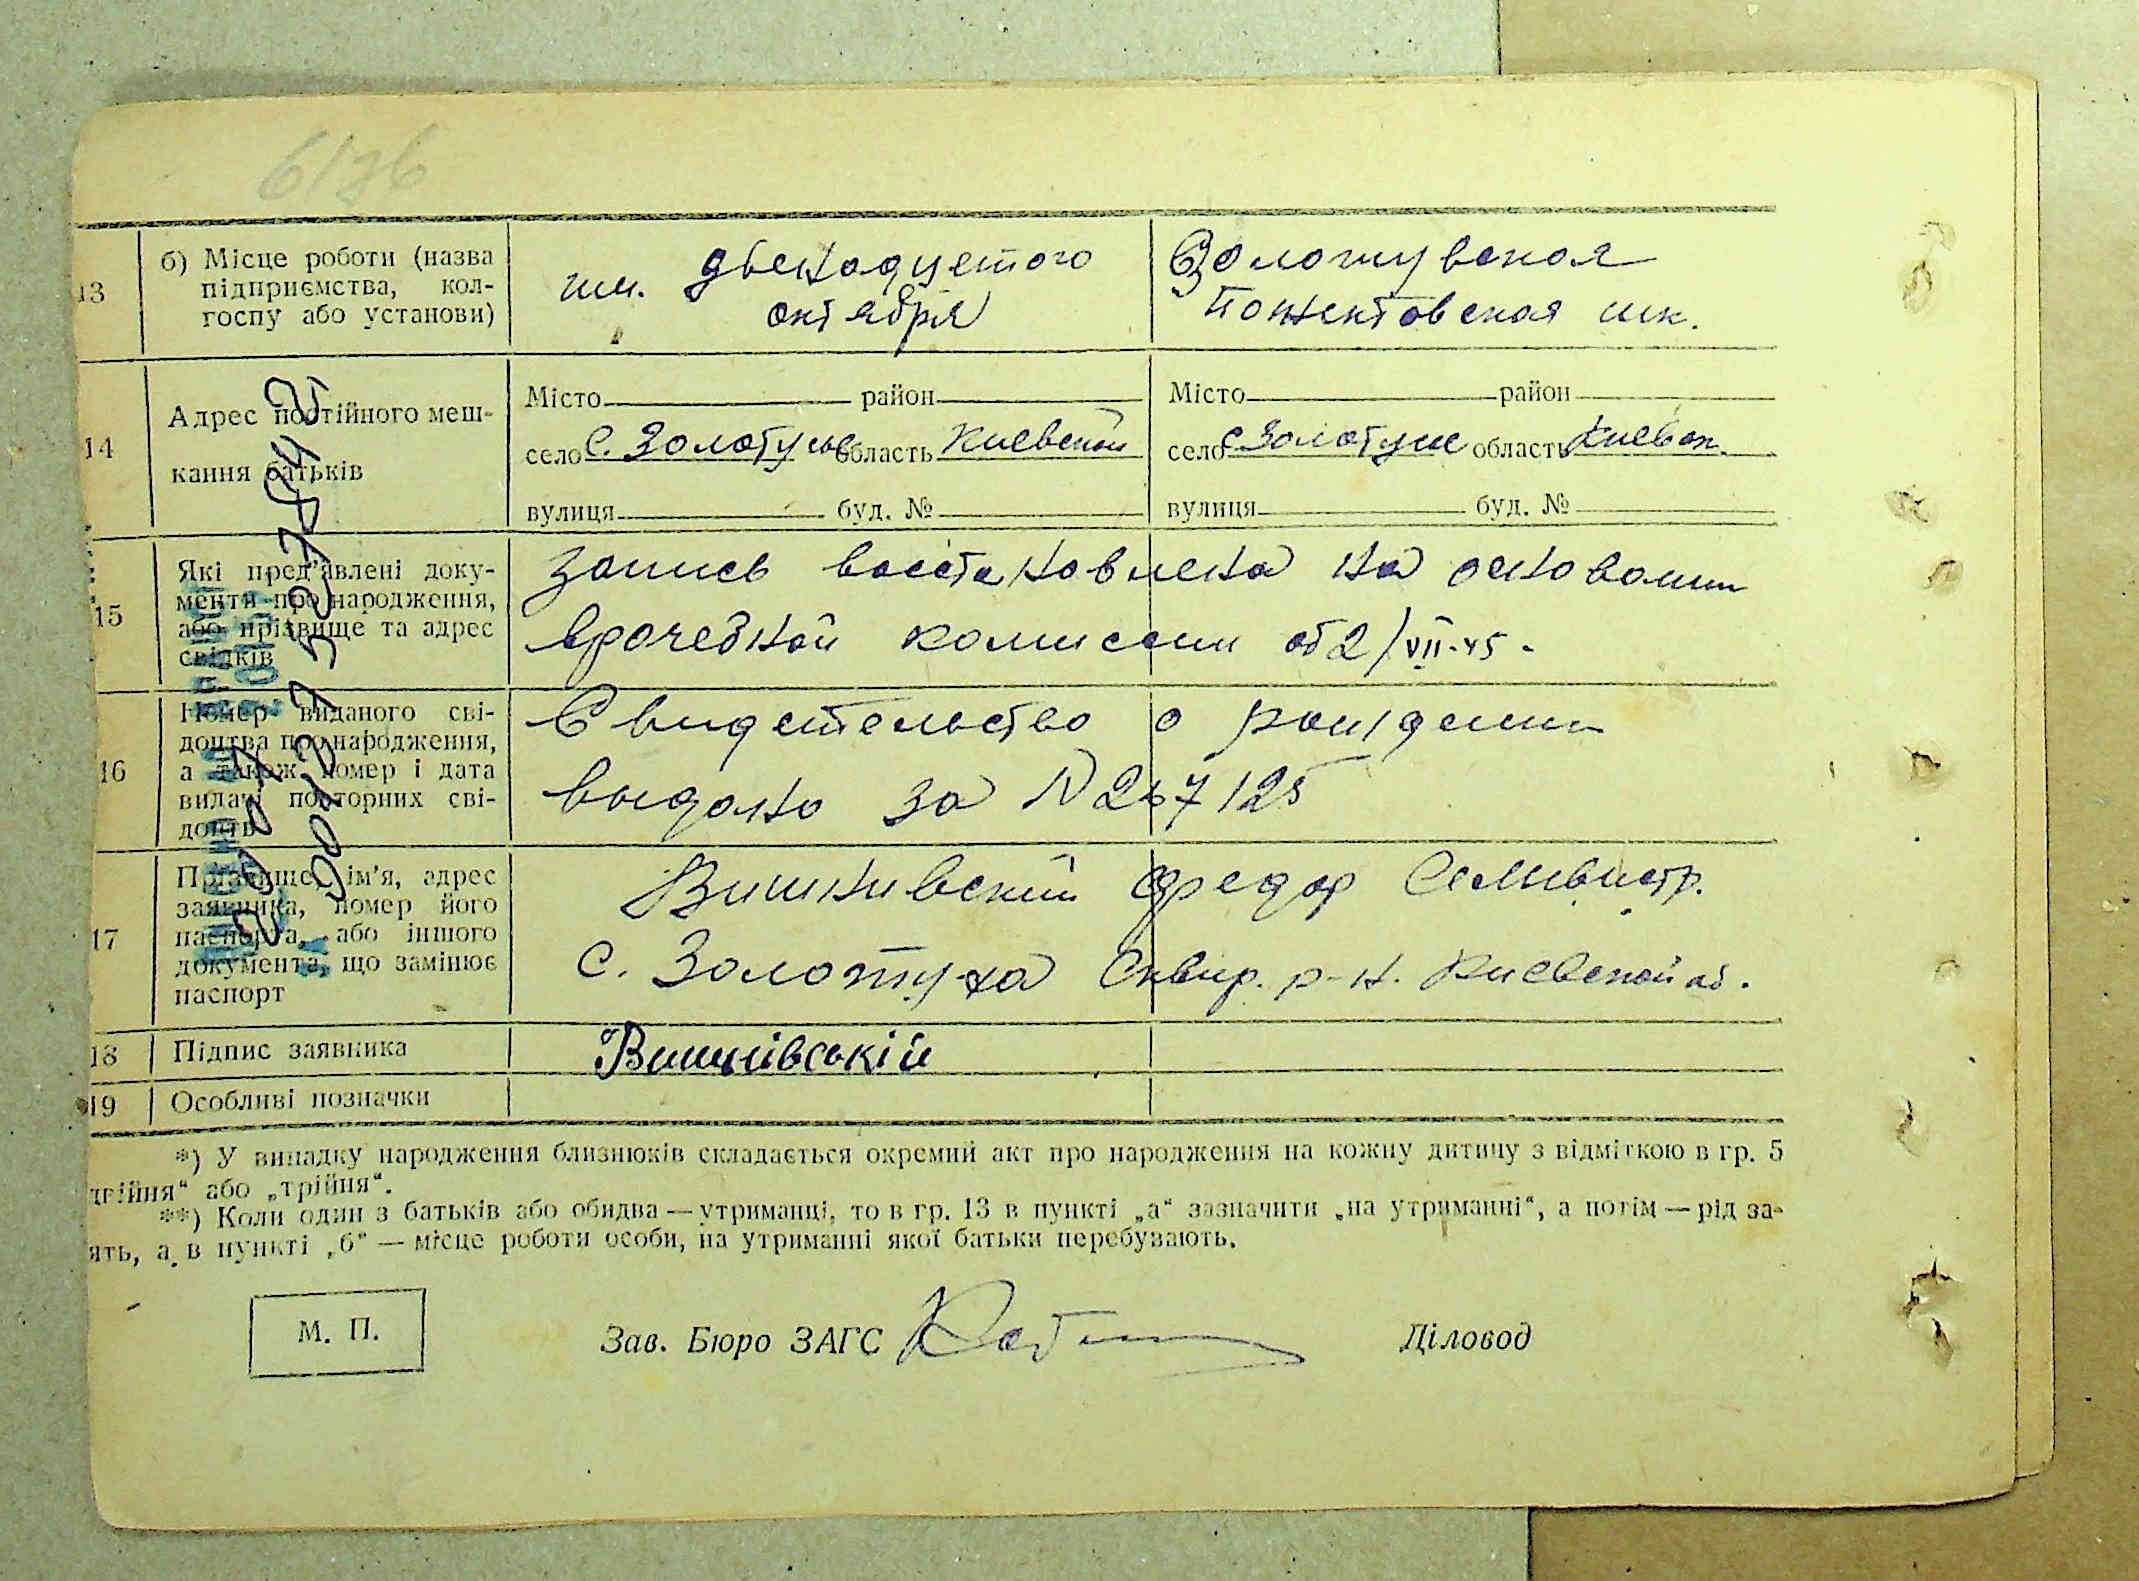 13
б) Місце роботи (назва
підприємства, кол-
госпу або установи)
им. двенадцетого
октября
Золотувская
шк.
14
Адрес постійного меш-
кання батьків
Місто район
село С. Золотухе область Киевской
вулиця буд. №
Місто район
село с Золотухе область Киевск.
вулиця буд. №
15
Які пред'явлені доку-
менти про народження,
або прізвище та адрес
свідків
Запись восстановлена на основании
врачебной комиссии от 2/VII-45.
16
Номер виданого сві-
доцтва про народження,
а також номер і дата
видачі повторних сві-
доцтв
Свидетельство о рождении
выдано за N 267125
17
Прізвище, ім'я, адрес
заявника, номер його
паспорта, або іншого
документа, що замінює
паспорт
Вишнивский Федор Селивистр.
С. Золотуха Сквир. р-н. Киевской об.
18
Підпис заявника
Вишнівській
19
Особливі позначки
*) У випадку народження близнюків складається окремий акт про народження на кожну дитину з відміткою в гр. 5
двійня" або „трійня".
**) Коли один з батьків або обидва — утриманці, то в гр. 13 в пункті „а" зазначити „на утриманні", а потім — рід за-
ять, а в пункті „б" — місце роботи особи, на утриманні якої батьки перебувають.
М. П.
Зав. Бюро ЗАГС
Діловод